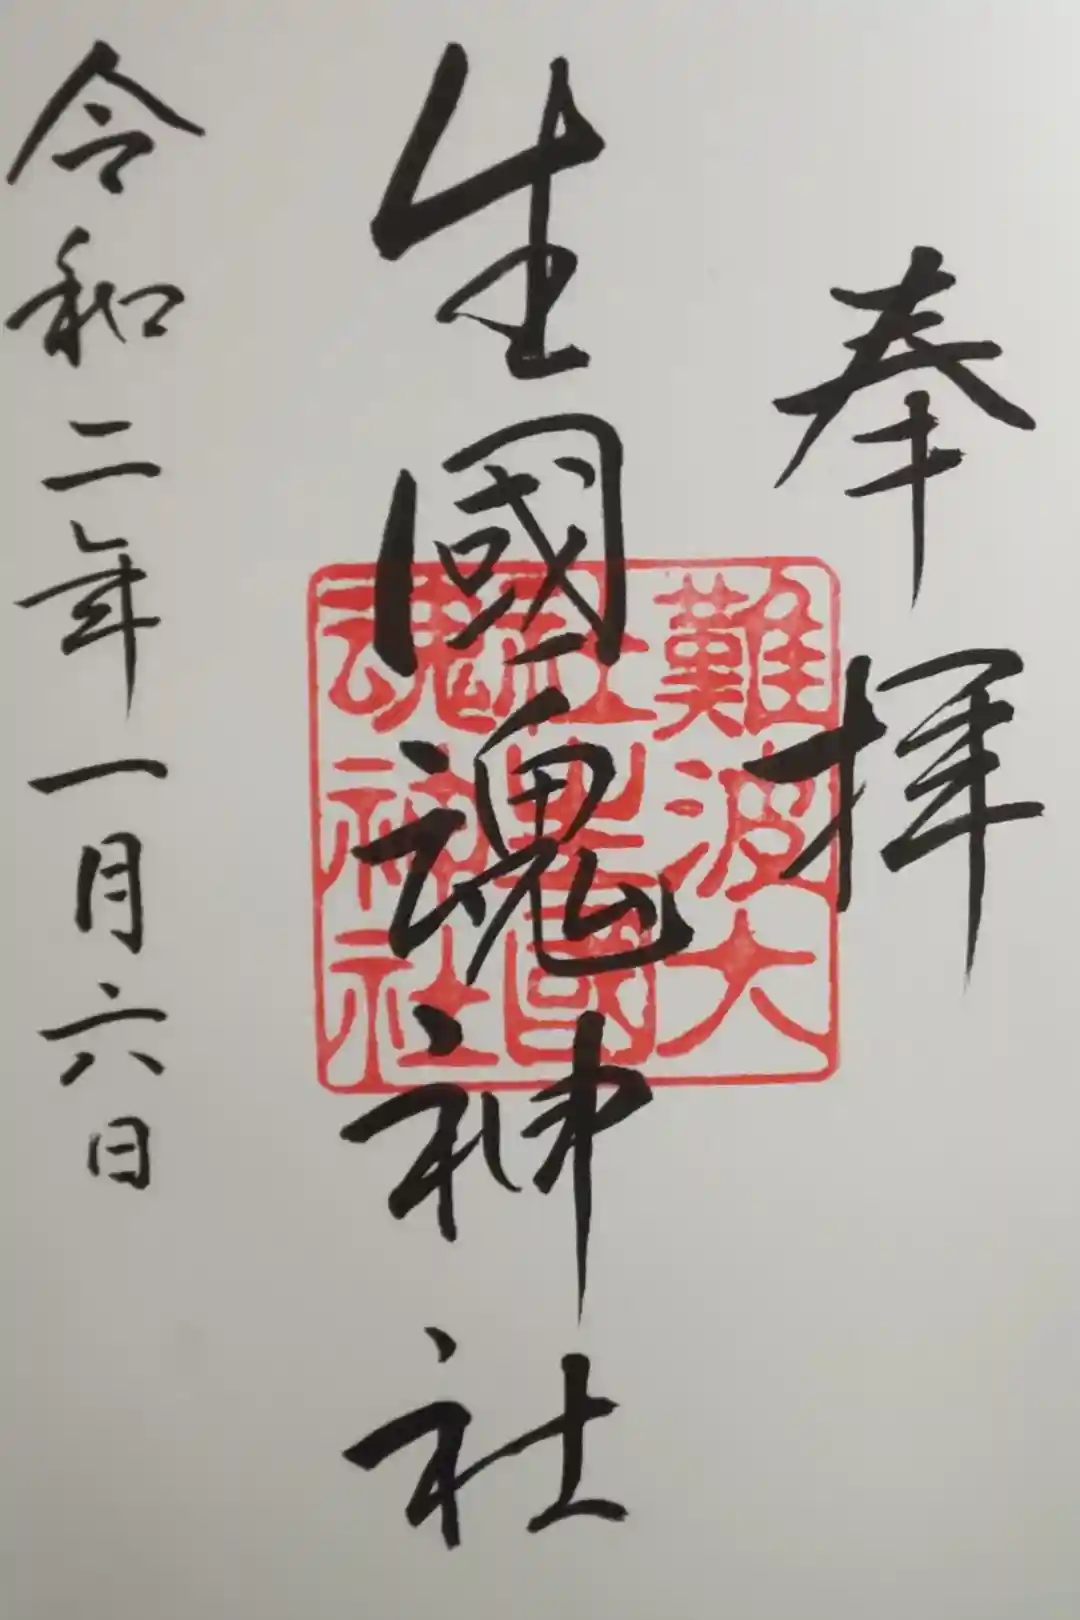 奉拝
生國魂神社
令和二年一月六日
難波大
社生國
魂神社